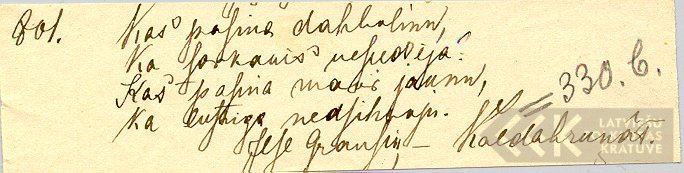 801. Kas pasina dahbolinu,
Ka sarkanis neseedeja?
Kas pasina mani jaunu,
Ka lustiga nedsihwoju.
= 330. C.
Ilse Kaldabruņās.
LATVIEŠU
KRĀTUVE